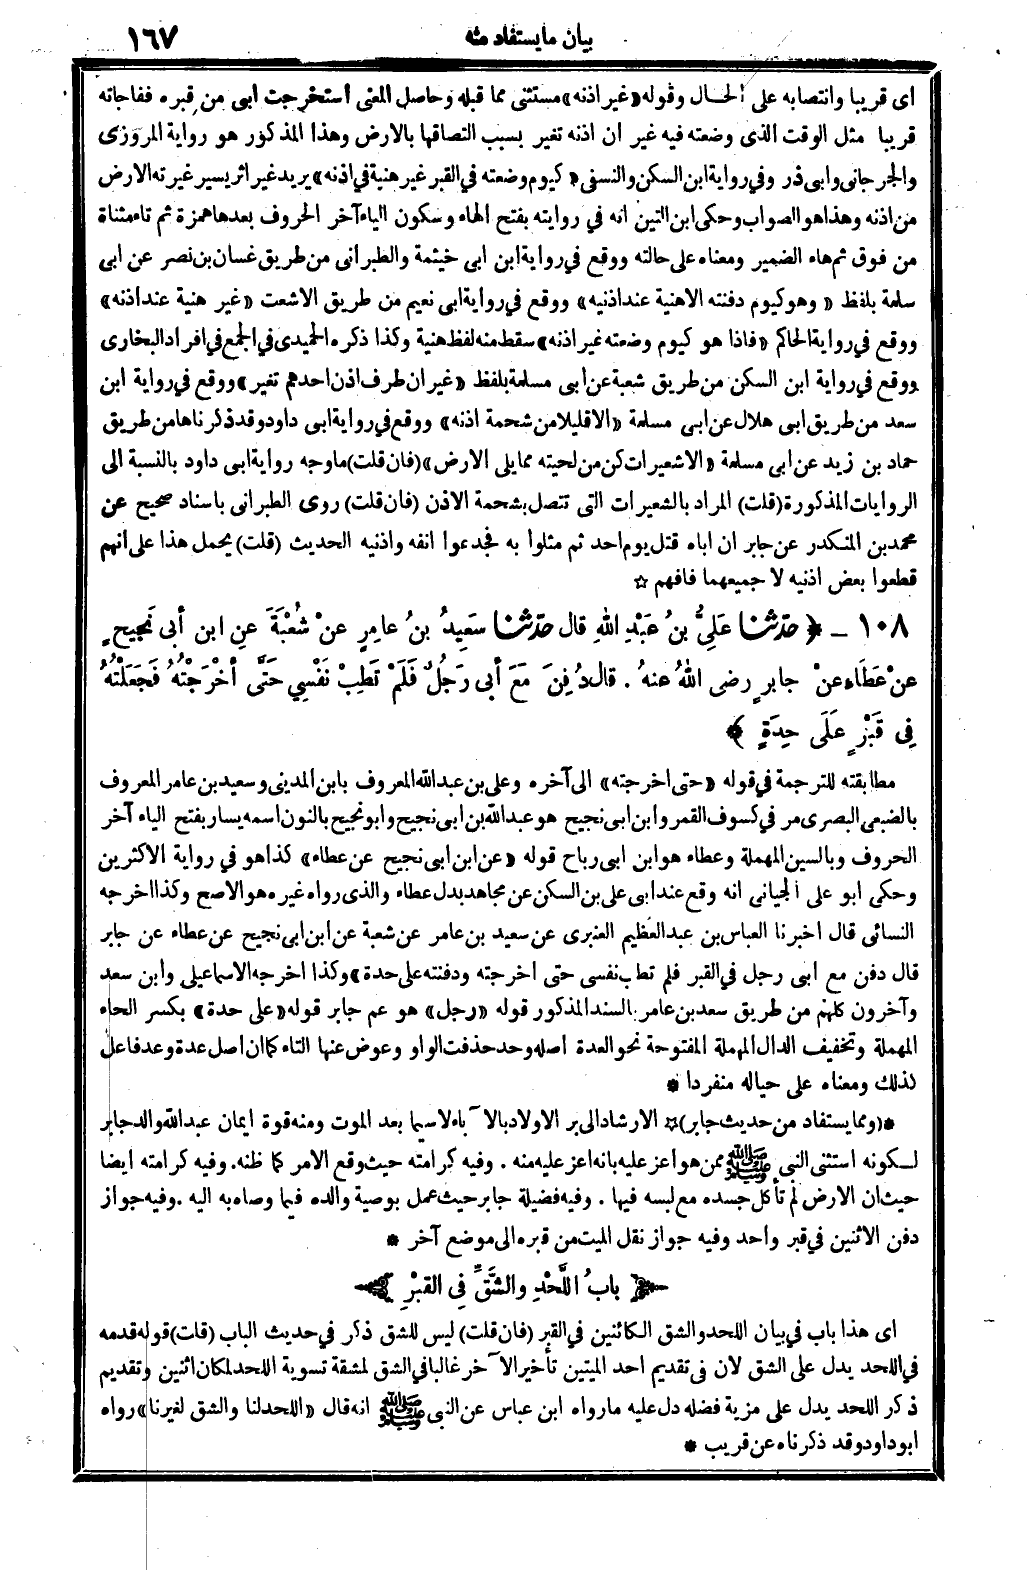 بيان مايستفاد منه ١٦٧
اى قريبا وانتصابه على الحال وقوله «غير اذنه» مستثنى مما قبله وحاصل المعنى استخرجت ابى من قبره ففاجاته
قريبا مثل الوقت الذى وضعته فيه غير ان اذنه تغير بسبب التصاقها بالارض وهذا المذكور هو رواية المروزى
والجرجانى وابى ذر وفى رواية ابن السكن والنسفى «كيوم وضعته فى القبر غير هنية فى اذنه» يريد غير اثر يسير غيرته الارض
من اذنه وهذا هو الصواب وحكى ابن التين انه في روايته بفتح الهاء وسكون الياء آخر الحروف بعدها همزة ثم تاء مثناة
من فوق ثم هاء الضمير ومعناه على حالته ووقع فى رواية ابن ابى خيثمة والطبرانى من طريق غسان بن نصر عن ابى
سلمة بلفظ « وهو كيوم دفنته الاهنية عند اذنيه» ووقع فى رواية ابى نعيم من طريق الاشعث «غير هنية عند اذنه»
ووقع فى رواية الحاكم «فاذا هو كيوم وضعته غير اذنه» سقط منه لفظ هنية وكذا ذكره الحميدى فى الجمع فى افراد البخارى
ووقع فى رواية ابن السكن من طريق شعبة عن ابى مسلمة بلفظ «غير ان طرف اذن احدهم تغير» ووقع فى رواية ابن
سعد من طريق ابى هلال عن ابى مسلمة «الا قليلا من شحمة اذنه» ووقع فى رواية ابى داود وقد ذكرناها من طريق
حماد بن زيد عن ابى مسلمة «الا شعيرات كن من لحيته مما يلى الارض» (فان قلت) ما وجه رواية ابى داود بالنسبة الى
الروايات المذكورة (قلت) المراد بالشعيرات التى تتصل بشحمة الاذن (فان قلت) روى الطبرانى باسناد صحيح عن
محمد بن المنكدر عن جابر ان اباه قتل يوم احد ثم مثلوا به فجدعوا انفه واذنيه الحديث (قلت) يحمل هذا على انهم
قطعوا بعض اذنيه لا جميعهما فافهم ☆
١٠٨ ـ ﴿ حدّثنا عَلِيُّ بنُ عَبْدِ اللهِ قال حدّثنا سَعِيدُ بنُ عامِرٍ عنْ شُعْبَةَ عنِ ابن أبى نَجِيحٍ
عنْ عَطَاء عنْ جابرٍ رضى اللهُ عنهُ . قال دُفِنَ مَعَ أبى رَجُلٌ فَلَمْ تَطِبْ نَفْسِي حَتَّى أخْرَجْتُهُ فَجَعَلْتُهُ
فِي قَبْرٍ عَلَى حِدَةٍ ﴾
مطابقته للترجمة فى قوله «حتى اخرجته» الى آخره وعلى بن عبد الله المعروف بابن المدينى وسعيد بن عامر المعروف
بالضبعى البصرى مر في كسوف القمر وابن ابى نجيح هو عبد الله بن ابى نجيح وابو نجيح بالنون اسمه يسار بفتح الياء آخر
الحروف وبالسين المهملة وعطاء هو ابن ابى رباح قوله «عن ابن ابى نجيح عن عطاء» كذا هو في رواية الاكثرين
وحكى ابو على الجيانى انه وقع عند ابى على بن السكن عن مجاهد بدل عطاء والذى رواه غيره هو الاصح وكذا اخرجه
النسائى قال اخبرنا العباس بن عبد العظيم العنبرى عن سعيد بن عامر عن شعبة عن ابن ابى نجيح عن عطاء عن جابر
قال دفن مع ابى رجل في القبر فلم تطب نفسى حتى اخرجته ودفنته على حدة» وكذا اخرجه الاسماعيلى وابن سعد
وآخرون كلهم من طريق سعد بن عامر بالسند المذكور قوله «رجل» هو عم جابر قوله «على حدة» بكسر الحاء
المهملة وتخفيف الدال المهملة المفتوحة نحو العدة اصله وحد حذفت الواو وعوض عنها التاء كما ان اصل عدة وعد فاعل
لذلك ومعناه على حياله منفردا *
*(ومما يستفاد من حديث جابر)☆ الارشاد الى بر الاولاد بالآباء لاسيما بعد الموت ومنه قوة ايمان عبد الله والد جابر
لكونه استثنى النبى ﷺ ممن هو اعز عليه بانه اعز عليه منه . وفيه كرامته حيث وقع الامر كما ظنه . وفيه كرامته ايضا
حيث ان الارض لم تأكل جسده مع لبسه فيها . وفيه فضيلة جابر حيث عمل بوصية والده فيما وصاه به اليه . وفيه جواز
دفن الاثنين في قبر واحد وفيه جواز نقل الميت من قبره الى موضع آخر *
باب اللَّحْدِ والشَّقِّ فِي القَبْرِ
اى هذا باب في بيان اللحد والشق الكائنين في القبر (فان قلت) ليس للشق ذكر في حديث الباب (قلت) قوله قدمه
في اللحد يدل على الشق لان فى تقديم احد الميتين تأخير الآخر غالبا في الشق لمشقة تسوية اللحد لمكان اثنين وتقديم
ذكر اللحد يدل على مزية فضله دل عليه ما رواه ابن عباس عن النبى ﷺ انه قال «اللحد لنا والشق لغيرنا» رواه
ابو داود وقد ذكرناه عن قريب *